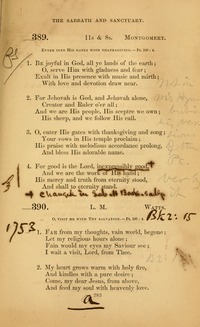 THE SABBATH AND SANCTUARY.
389. 11s & 8s. MONTGOMERY.
ENTER INTO HIS GATES WITH THANKSGIVING.—Ps. 100: 4.
1. BE joyful in God, all ye lands of the earth;
O, serve Him with gladness and fear;
Exult in His presence with music and mirth;
With love and devotion draw near.
2. For Jehovah is God, and Jehovah alone,
Creator and Ruler o'er all;
And we are His people, His sceptre we own;
His sheep, and we follow His call.
3. O, enter His gates with thanksgiving and song;
Your vows in His temple proclaim;
His praise with melodious accordance prolong,
And bless His adorable name.
4. For good is the Lord, inexpressibly good,
And we are the work of His hand;
His mercy and truth from eternity stood,
And shall to eternity stand.
390. L. M. WATTS.
Bk2: 15
O, VISIT ME WITH THY SALVATION.—Ps. 106: 4.
1753
1. FAR from my thoughts, vain world, begone;
Let my religious hours alone;
Fain would my eyes my Saviour see;
I wait a visit, Lord, from Thee.
2. My heart grows warm with holy fire,
And kindles with a pure desire;
Come, my dear Jesus, from above,
And feed my soul with heavenly love.